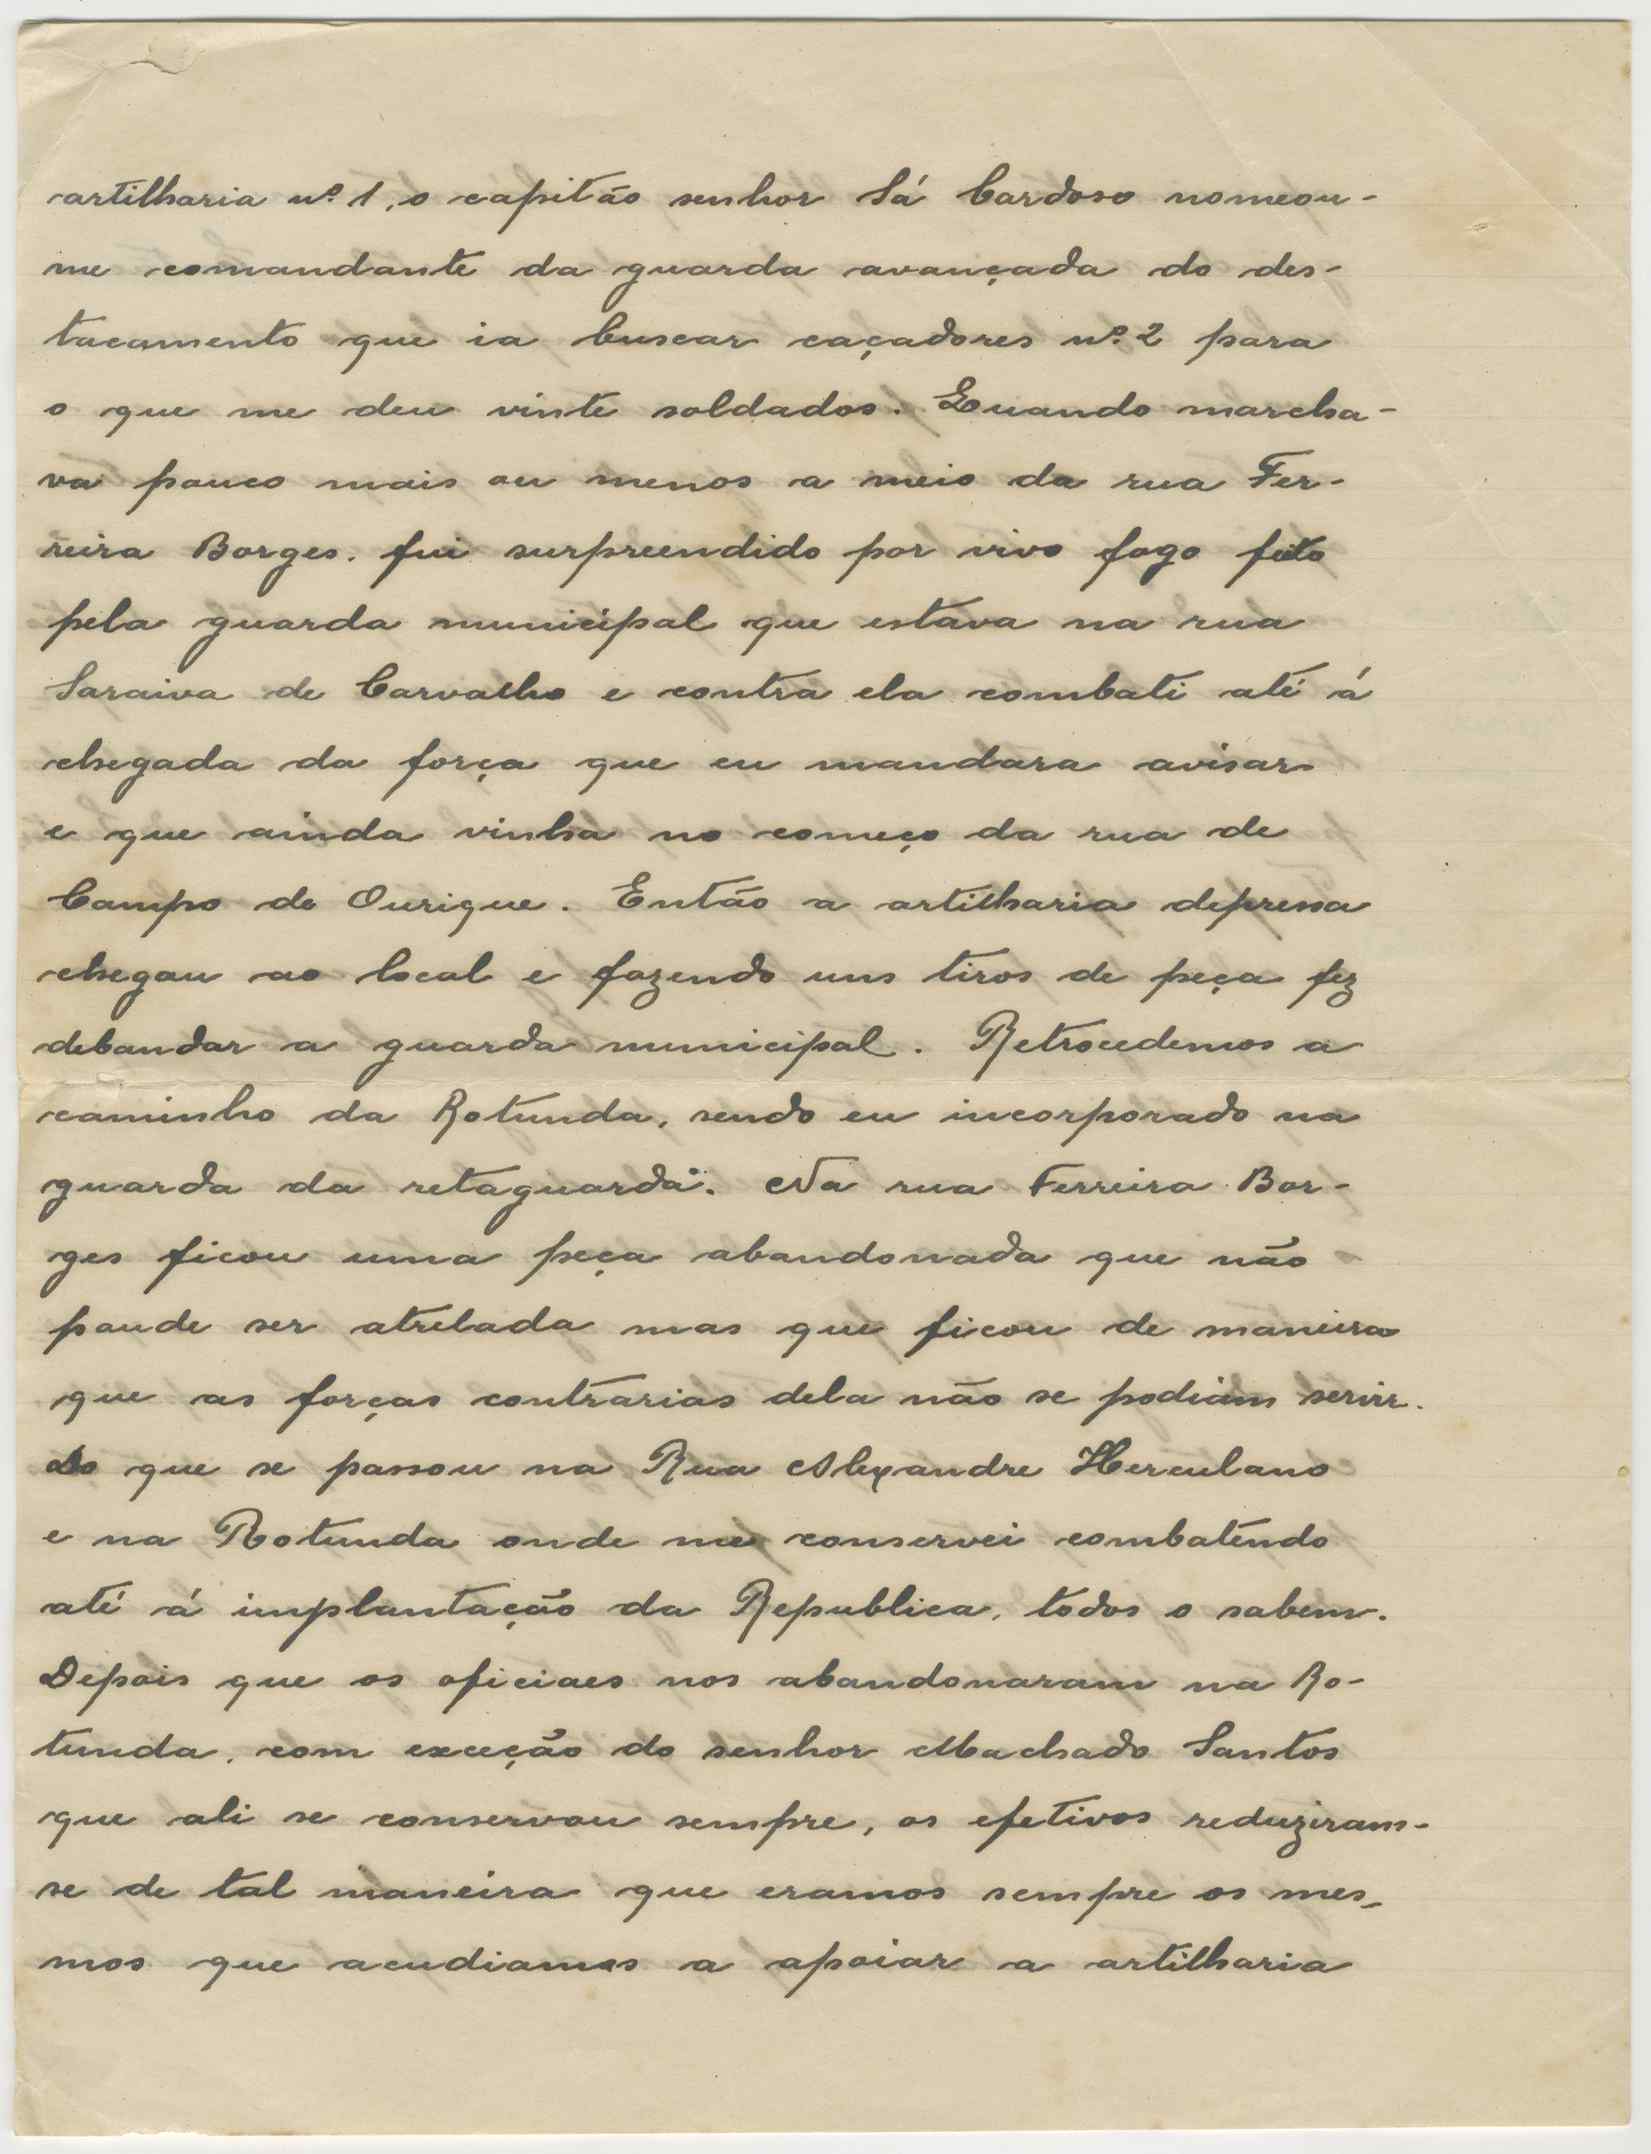 artilharia nº 1, o capitão senhor Sá Cardoso nomeou-
me comandante da guarda avançada do des-
tacamento que ia buscar caçadores nº 2 para
o que me deu vinte soldados. Quando marcha-
va pouco mais ou menos a meio da rua Fer-
reira Borges. fui surpreendido por vivo fogo feito
pela guarda municipal que estava na rua
Saraiva de Carvalho e contra ela combati até á
chegada da força que eu mandara avisar
e que ainda vinha no começo da rua de
Campo de Ourique. Então a artilharia depressa
chegou ao local e fazendo uns tiros de peça fez
debandar a guarda municipal. Retrocedemos a
caminho da Rotunda, sendo eu incorporado na
guarda da retaguarda. Na rua Ferreira Bor-
ges ficou uma peça abandonada que não
poude ser atrelada mas que ficou de maneira
que as forças contrarias dela não se podiam servir.
Do que se passou na Rua Alexandre Herculano
e na Rotunda onde me conservei combatendo
até á implantação da Republica, todos o sabem.
Depois que os oficiaes nos abandonaram na Ro-
tunda, com exceção do senhor Machado Santos
que ali se conservou sempre, os efetivos reduziram-
se de tal maneira que eramos sempre os mes-
mos que acudiamos a apoiar a artilharia